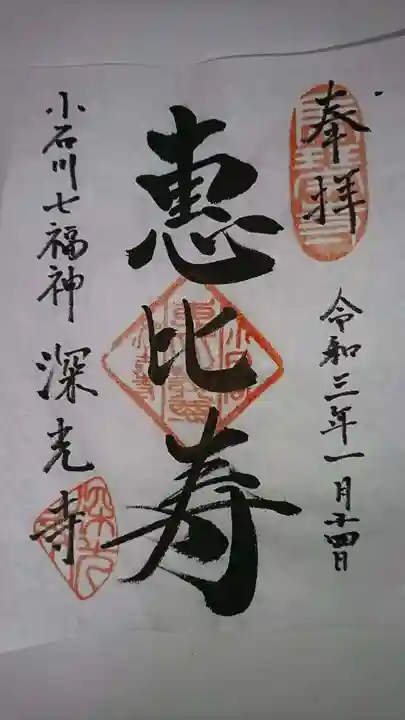 奉拝
令和三年一月十四日
恵比寿
小石川七福神 深光寺